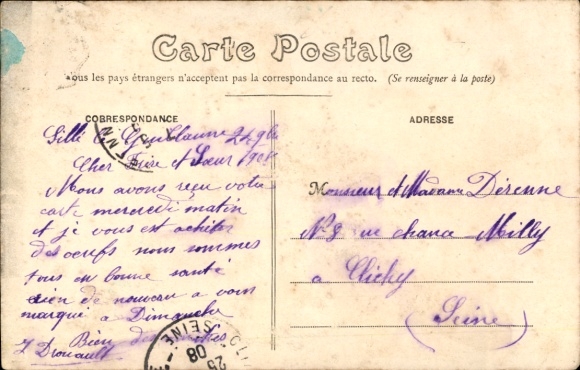 Carte Postale
ous les pays étrangers n'acceptent pas la correspondance au recto. (Se renseigner à la poste)
CORRESPONDANCE
Sillé le Guillaume 24 9bre
Cher Frère et Soeur 1908
Nous avons reçu votre
carte mercredi matin
et je vous est acheter
des oeufs nous sommes
tous en bonne santé
rien de nouveau a vous
marqué a Dimanche
Bien des amities
Drouault
ADRESSE
Monsieur et Madame Dérenne
N° 9 rue chance Milly
a Clichy
(Seine)
SEINE
25
08